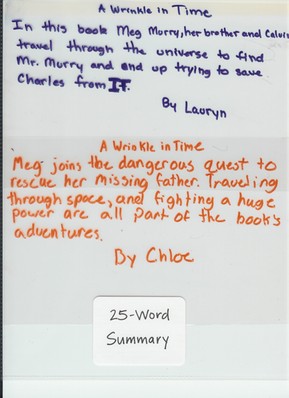 A Wrinkle in Time
In this book Meg Murry, her brother and Calvin
travel through the universe to find
Mr. Murry and end up trying to save
Charles from IT.
By Lauryn
A Wrinkle in Time
Meg joins the dangerous quest to
rescue her missing father. Traveling
through space, and fighting a huge
power are all part of the book's
adventures.
By Chloe
25-Word
Summary